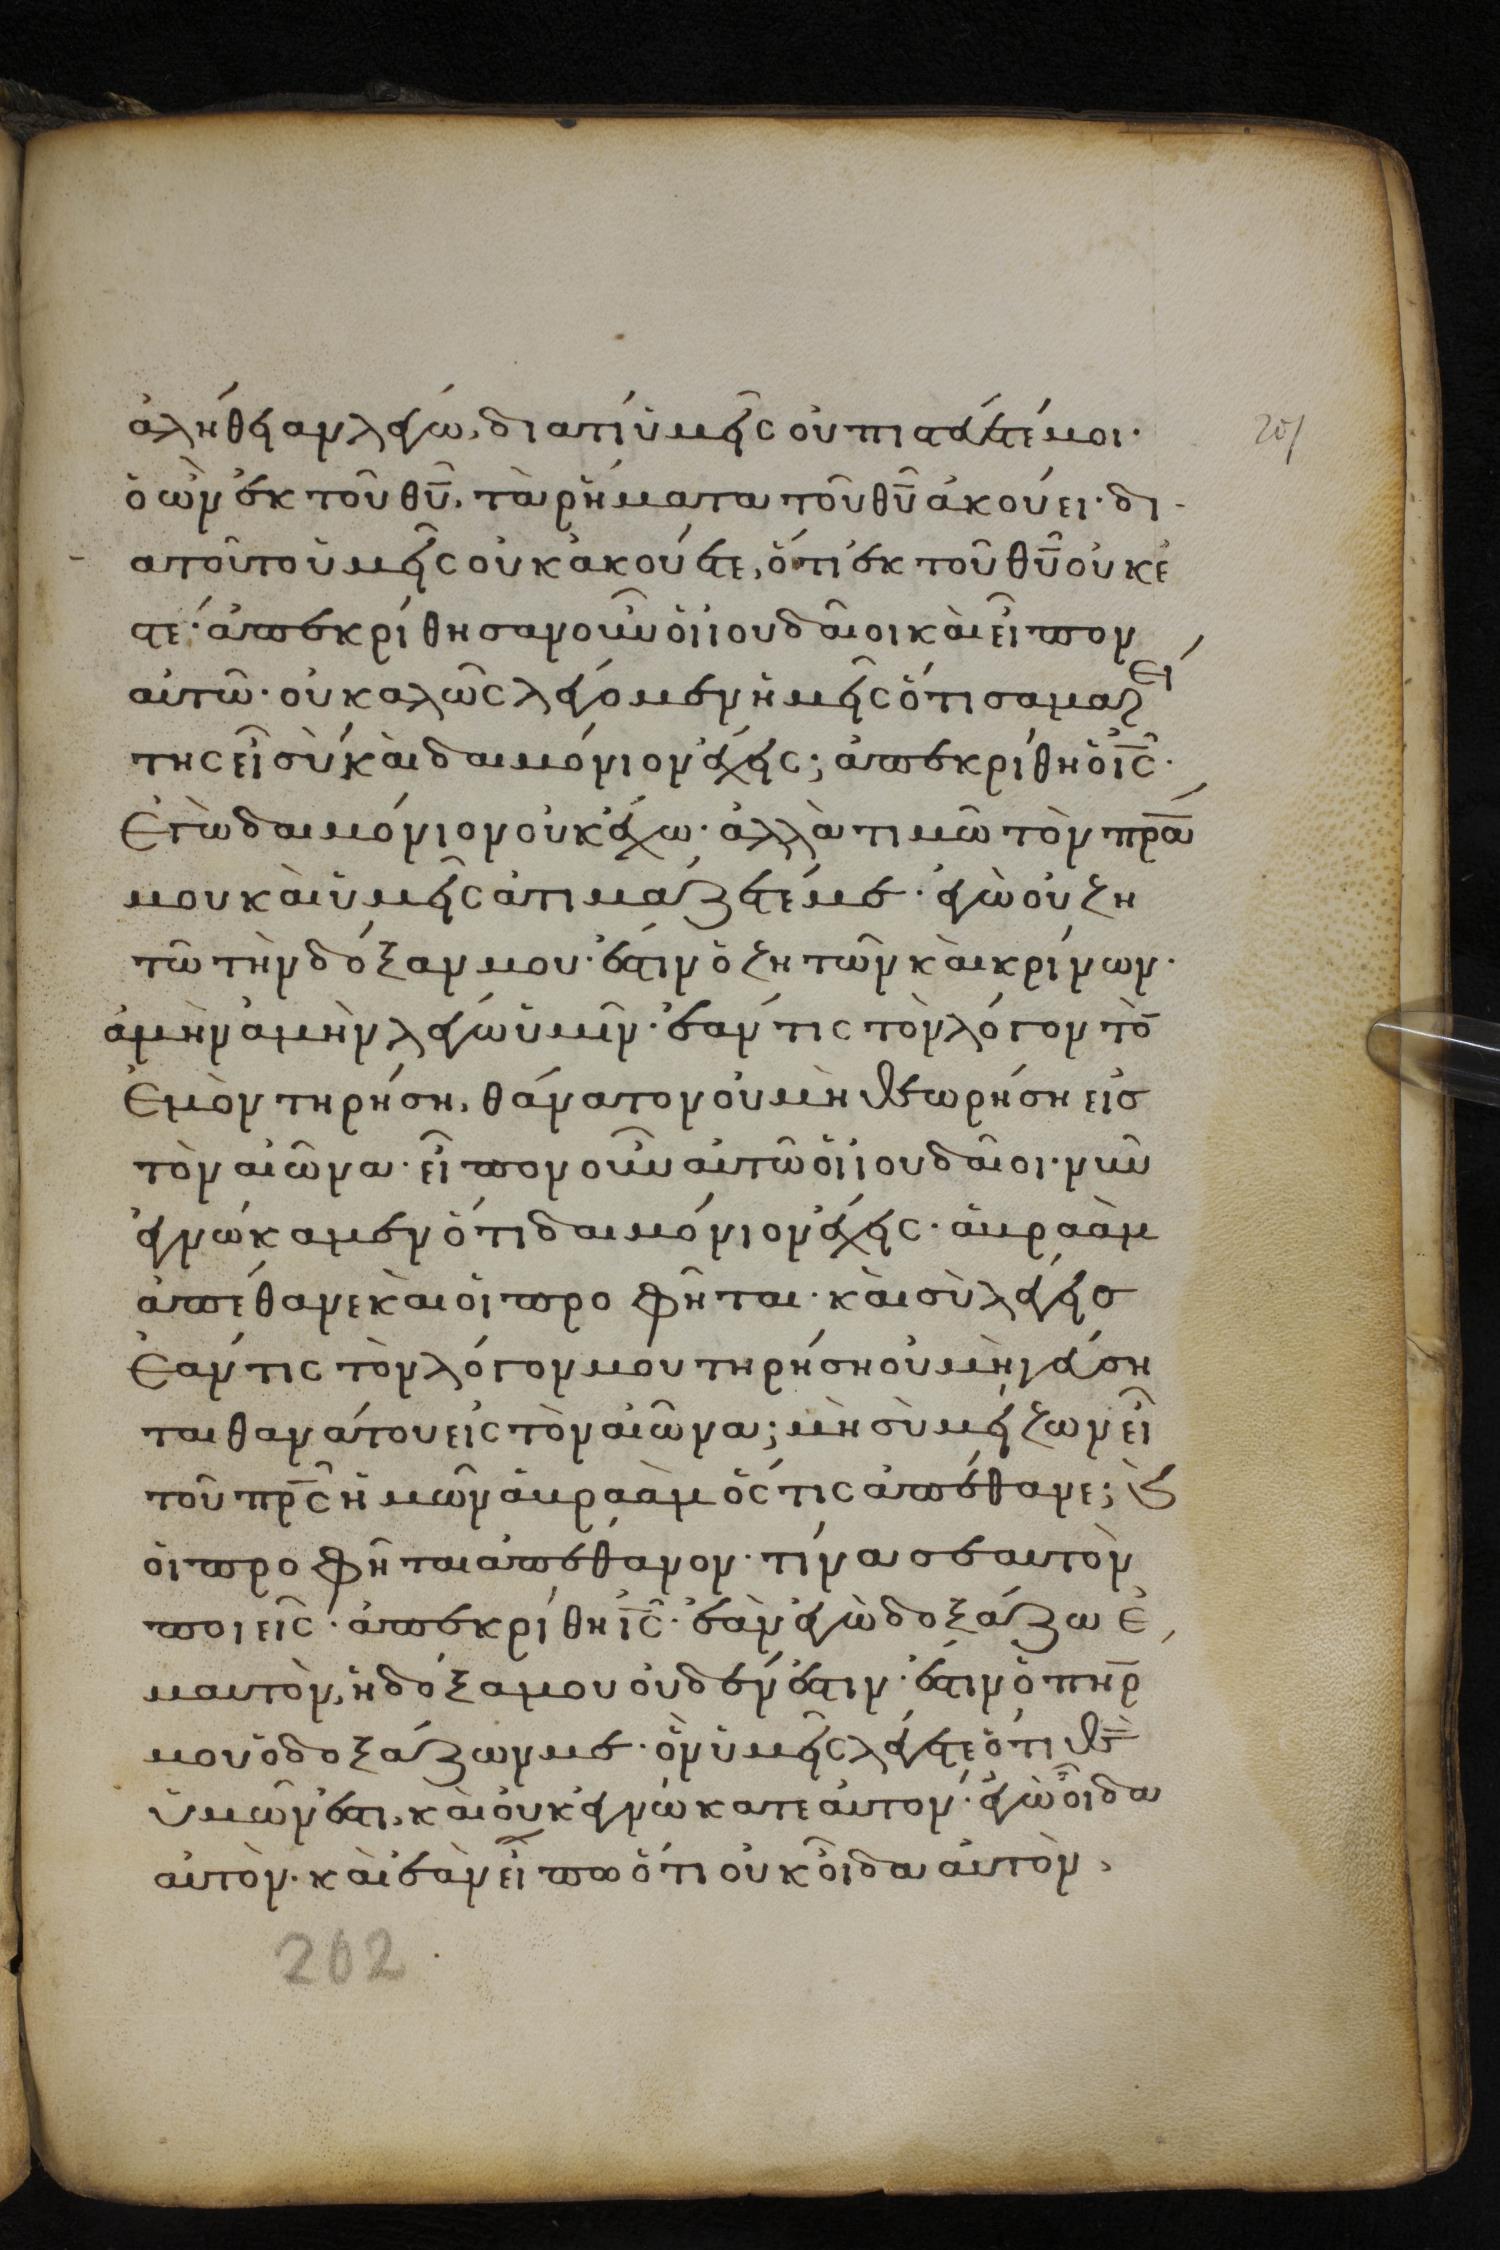 ἀλήθειαν λέγω, διατί ὑμεῖς οὐ πιστεύετέ μοι· 201
ὁ ὢν ἐκ τοῦ θῦ, τὰ ῥήματα τοῦ θῦ ἀκούει· δι
ατοῦτο ὑμεῖς οὐκ ἀκούετε, ὅτι ἐκ τοῦ θῦ οὐκ ἐ
στέ· ἀπεκρίθησαν οὖν ὁι ἰουδαῖοι καὶ εἶπον
αὐτῶ· οὐ καλῶς λέγομεν ἡμεῖς ὅτι σαμαρεί
της εἶ σὺ καὶ δαιμόνιον ἔχεις; ἀπεκρίθη ὁ ἰς·
Ἐγὼ δαιμόνιον οὐκ ἔχω· ἀλλὰ τιμῶ τὸν πρα
μου καὶ ὑμεῖς ἀτιμάζετέ με· ἐγὼ οὐ ζη
τῶ τὴν δόξαν μου· ἔστιν ὁ ζητῶν καὶ κρίνων·
ἀμὴν ἀμὴν λέγω ὑμῖν· ἐάν τις τὸν λόγον τὸ
Ἐμὸν τηρήση, θάνατον οὐ μὴ θεωρήση εἰς
τὸν αἰῶνα· εἶπον οὖν αὐτῶ ὁι ἰουδαῖοι· νῦν
ἐγνώκαμεν ὅτι δαιμόνιον ἔχεις· ἁβραὰμ
ἀπέθανε καὶ ὁι προφῆται· καὶ σὺ λέγεις
Ἐάν τις τὸν λόγον μου τηρήση οὐ μὴ γεύση
ται θανάτου εἰς τὸν αἰῶνα; μὴ σὺ μείζων εἶ
τοῦ πρς ἡμῶν ἁβραὰμ ὅστις ἀπέθανε; ϗ
ὁι προφῆται ἀπέθανον· τίνα σεαυτὸν
ποιεῖς· ἀπεκρίθη ἰς· ἐὰν ἐγὼ δοξάζω ἐ
μαυτὸν, ἡ δόξα μου οὐδέν ἐστιν· ἔστιν ὁ πηρ
μου ὁ δοξάζων με· ὃν ὑμεῖς λέγετε ὅτι θς
ὑμῶν ἐστι, καὶ οὐκ ἐγνώκατε αὐτον· ἐγὼ οἶδα
αὐτὸν· καὶ ἐὰν εἴπω ὅτι οὐκ οἶδα αὐτὸν,
202